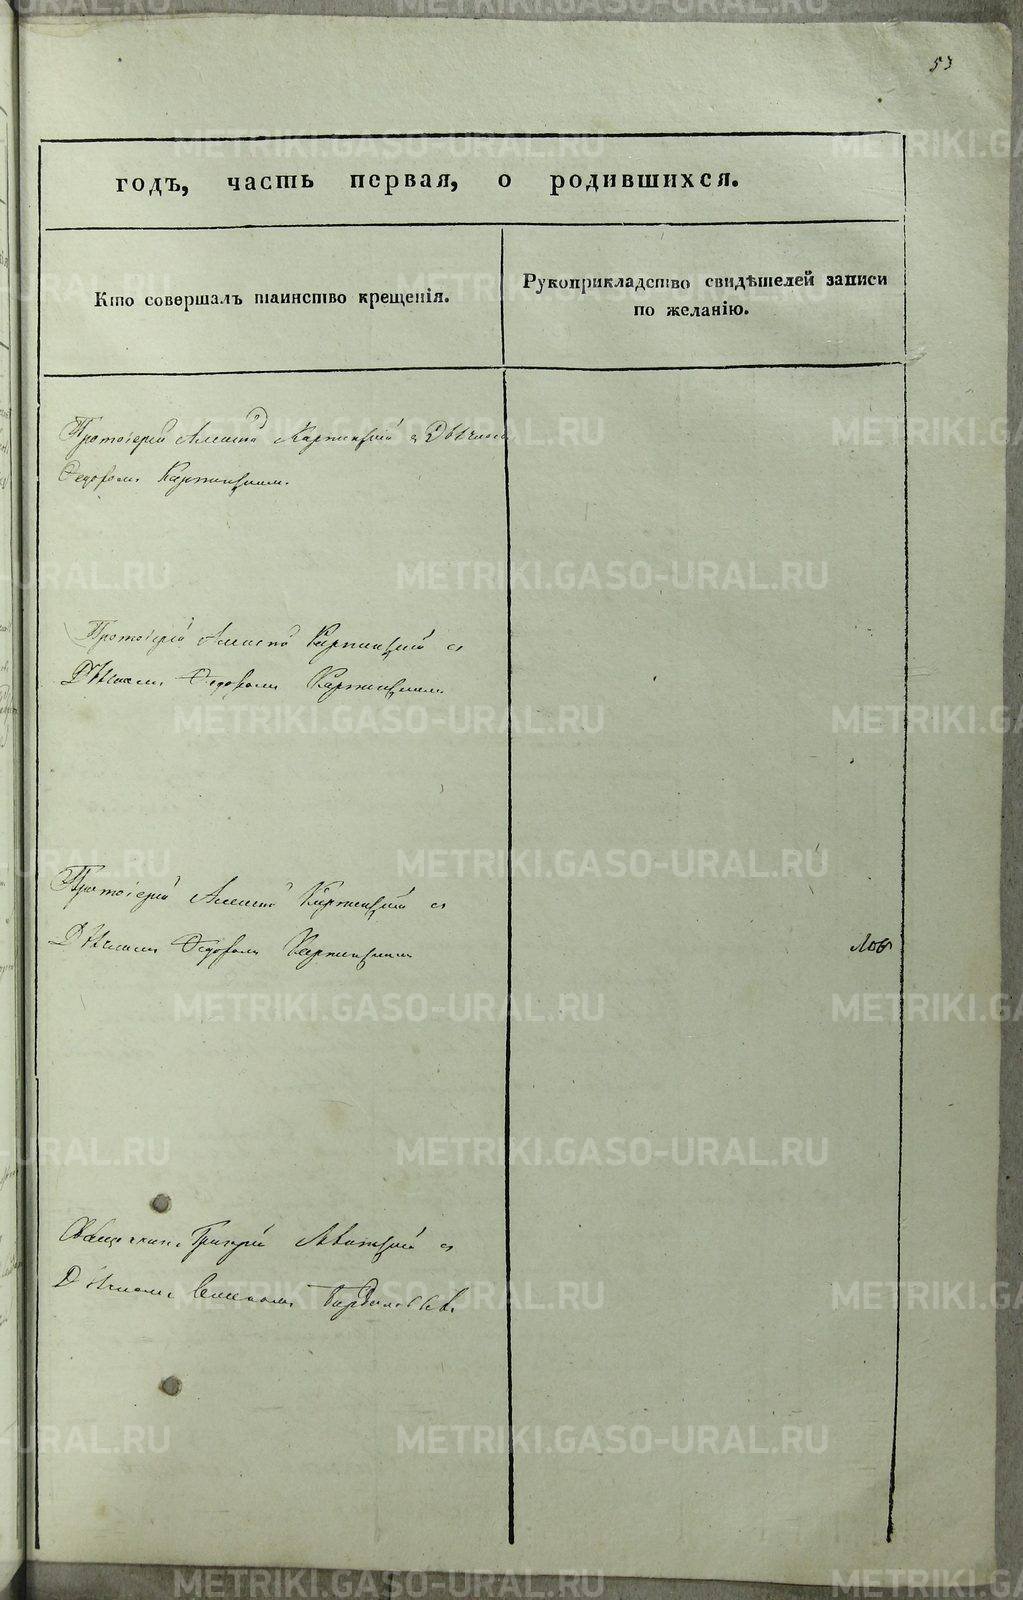 53
годъ, часть первая, о родившихся.
Кто совершалъ таинство крещенія.
Рукоприкладство свидѣтелей записи
по желанію.
Протоіерей Алексѣй Карпинскій с Дьячкомъ
Федоромъ Карпинскимъ.
Протоіерей Алексѣй Карпинскій с
Дьячкомъ Федоромъ Карпинскимъ
Протоіерей Алексѣй Карпинскій с
Дьячкомъ Федоромъ Карпинскимъ
Священникъ Григорій с
Дьячкомъ
METRIKI.GASO-URAL.RU